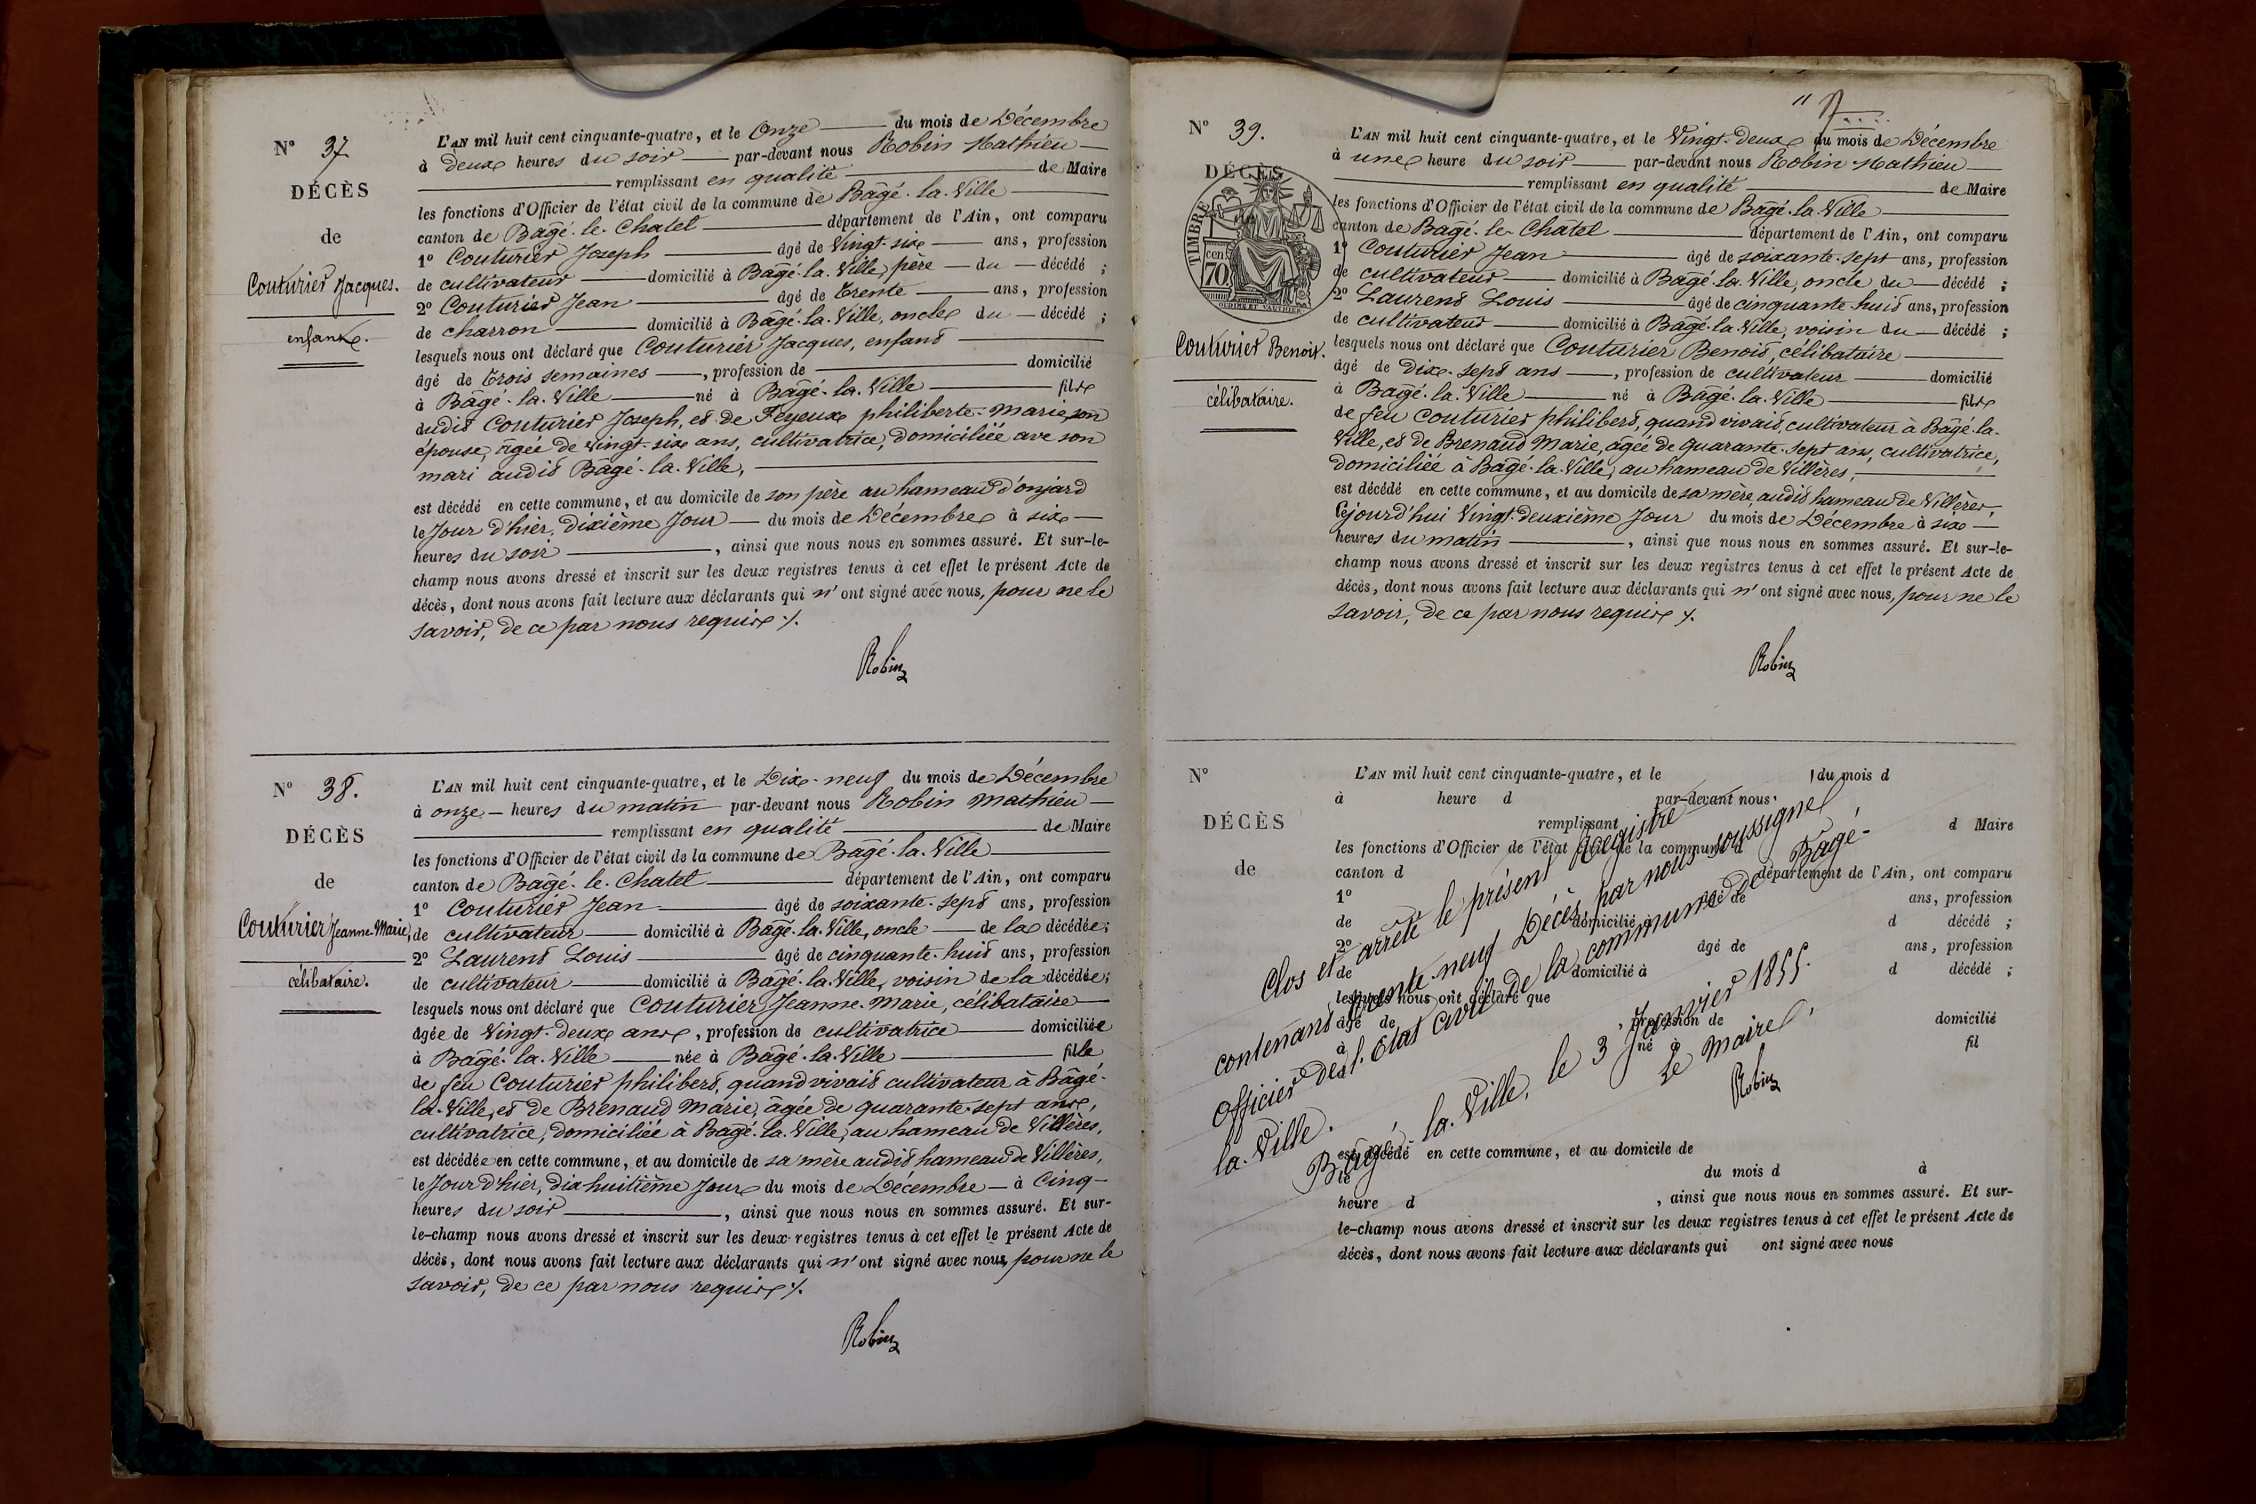 N° 37
DÉCÈS
de
Couturier Jacques.
enfant.
L'AN mil huit cent cinquante-quatre, et le Onze du mois de Décembre
à deux heures du soir par-devant nous Robin Mathieu
remplissant en qualité de Maire
les fonctions d'Officier de l'état civil de la commune de Bâgé-la-Ville
canton de Bâgé-le-Chatel département de l'Ain, ont comparu
1° Couturier Joseph âgé de Vingt-six ans, profession
de cultivateur domicilié à Bâgé-la-Ville, père du décédé ;
2° Couturier Jean âgé de Trente ans, profession
de charron domicilié à Bâgé-la-Ville, oncle du décédé ;
lesquels nous ont déclaré que Couturier Jacques, enfant
âgé de trois semaines, profession de domicilié
à Bâgé-la-Ville né à Bâgé-la-Ville fils
dudit Couturier Joseph, et de Feyeux philiberte-Marie, son
épouse, âgée de vingt-six ans, cultivatrice, domiciliée ave son
mari audit Bâgé-la-Ville,
est décédé en cette commune, et au domicile de son père au hameau d'onjard
le Jour d'hier, dixième Jour du mois de Décembre à six
heures du soir, ainsi que nous nous en sommes assuré. Et sur-le-
champ nous avons dressé et inscrit sur les deux registres tenus à cet effet le présent Acte de
décès, dont nous avons fait lecture aux déclarants qui n'ont signé avec nous, pour ne le
savoir, de ce par nous requis.
Robin
N° 38.
DÉCÈS
de
Couturier Jeanne-Marie,
célibataire.
L'AN mil huit cent cinquante-quatre, et le Dix-neuf du mois de Décembre
à onze heures du matin par-devant nous Robin Mathieu
remplissant en qualité de Maire
les fonctions d'Officier de l'état civil de la commune de Bâgé-la-Ville
canton de Bâgé-le-Chatel département de l'Ain, ont comparu
1° Couturier Jean âgé de soixante-sept ans, profession
de cultivateur domicilié à Bâgé-la-Ville, oncle de la décédée ;
2° Laurent Louis âgé de cinquante-huit ans, profession
de cultivateur domicilié à Bâgé-la-Ville, voisin de la décédée ;
lesquels nous ont déclaré que Couturier Jeanne-Marie, célibataire
âgée de Vingt-deux ans, profession de cultivatrice domiciliée
à Bâgé-la-Ville née à Bâgé-la-Ville fille
de feu Couturier philibert, quand vivait cultivateur à Bâgé-
la-Ville, et de Brenaud Marie, âgée de quarante-sept ans,
cultivatrice, domiciliée à Bâgé-la-Ville, au hameau de Villères,
est décédée en cette commune, et au domicile de sa mère audit hameau de Villères,
le Jour d'hier, dix huitième Jour du mois de Décembre à Cinq
heures du soir, ainsi que nous nous en sommes assuré. Et sur-
le-champ nous avons dressé et inscrit sur les deux registres tenus à cet effet le présent Acte de
décès, dont nous avons fait lecture aux déclarants qui n'ont signé avec nous, pour ne le
savoir, de ce par nous requis.
Robin
N° 39.
DÉCÈS
TIMBRE
70
cen
Couturier Benoit.
célibataire.
L'AN mil huit cent cinquante-quatre, et le Vingt-Deux du mois de Décembre
à une heure du soir par-devant nous Robin Mathieu
remplissant en qualité de Maire
les fonctions d'Officier de l'état civil de la commune de Bâgé-la-Ville
canton de Bâgé-le-Chatel département de l'Ain, ont comparu
1° Couturier Jean âgé de soixante-sept ans, profession
de cultivateur domicilié à Bâgé-la-Ville, oncle du décédé ;
2° Laurent Louis âgé de cinquante-huit ans, profession
de cultivateur domicilié à Bâgé-la-Ville, voisin du décédé ;
lesquels nous ont déclaré que Couturier Benoit, célibataire
âgé de Dix-sept ans, profession de cultivateur domicilié
à Bâgé-la-Ville né à Bâgé-la-Ville fils
de feu Couturier philibert, quand vivait, cultivateur à Bâgé-la-
Ville, et de Brenaud Marie, âgée de Quarante-Sept ans, cultivatrice,
domiciliée à Bâgé-la-Ville, au hameau de Villères,
est décédé en cette commune, et au domicile de sa mère audit hameau de Villères
Cejourd'hui Vingt-deuxième Jour du mois de Décembre à six
heures du matin, ainsi que nous nous en sommes assuré. Et sur-le-
champ nous avons dressé et inscrit sur les deux registres tenus à cet effet le présent Acte de
décès, dont nous avons fait lecture aux déclarants qui n'ont signé avec nous, pour ne le
savoir, de ce par nous requis.
Robin
N°
DÉCÈS
de
L'AN mil huit cent cinquante-quatre, et le du mois d
à heure d par-devant nous
remplissant d Maire
les fonctions d'Officier de l'état civil de la commune d
canton d département de l'Ain, ont comparu
1° âgé de ans, profession
de domicilié à d décédé ;
2° âgé de ans, profession
de domicilié à d décédé ;
lesquels nous ont déclaré que
âgé de , profession de domicilié
à né à fil
d
est décédé en cette commune, et au domicile de
le du mois d à
heure d , ainsi que nous nous en sommes assuré. Et sur-
le-champ nous avons dressé et inscrit sur les deux registres tenus à cet effet le présent Acte de
décès, dont nous avons fait lecture aux déclarants qui ont signé avec nous
Clos et arrêté le présent Registre
contenant trente-neuf Décès par nous soussigné
Officier de l'Etat Civil de la commune de Bâgé-
la-Ville.
Bâgé-la-Ville, le 3 Janvier 1855.
Le Maire,
Robin